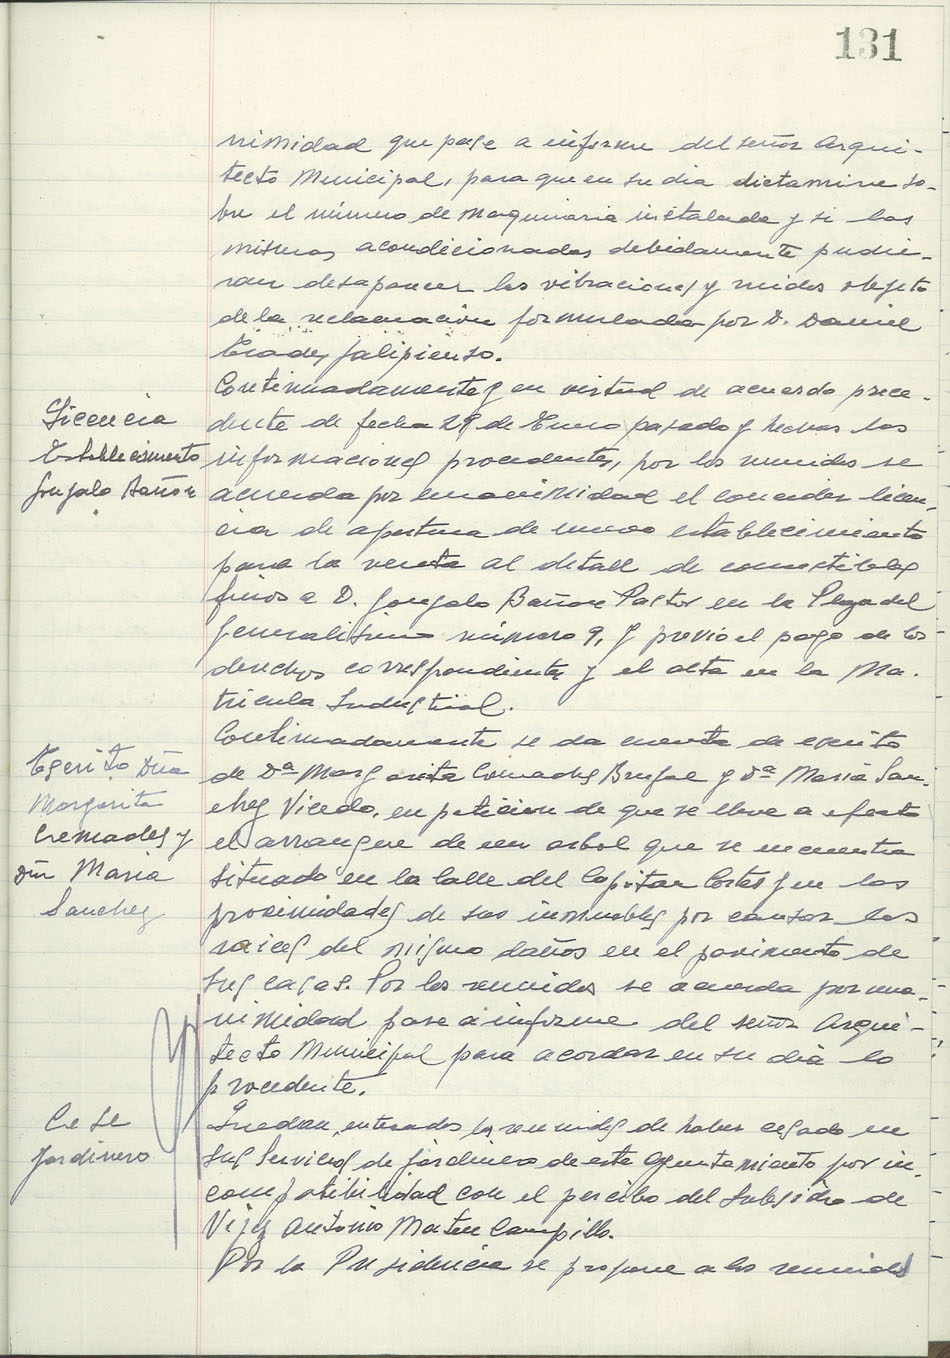 131
nimidad que pase a informe del señor Arqui-
tecto Municipal, para que en su dia dictamine so-
bre el número de maquinaria instalada y si las
mismas acondicionadas debidamente pudie-
ran desaparecer las vibraciones y ruidos objeto
de la reclamación formulada por D. Daniel
Continuadamente y en virtud de acuerdo prece-
Licencia
dente de fecha 29 de Enero pasado y hechas las
Establecimiento
informaciones procedentes, por los reunidos se
Gonzalo Bañon
acuerda por unanimidad el conceder licen-
cia de apertura de nuevo establecimiento
para la venta al detall de comestibles
finos a D. Gonzalo Bañon Pastor en la Plaza del
Generalisimo número 9, y previo el pago de los
derechos correspondientes y el alta en la Ma-
tricula Industrial.
Continuadamente se da cuenta de escrito
Escrito Dña
de Dª Margarita Cremades Brufal y Dª Maria San-
Margarita
chez Vicedo, en peticion de que se lleve a efecto
Cremades y
el arranque de un arbol que se encuentra
Dña Maria
situado en la Calle del Capitan Cortes y en las
Sanchez
proximidades de sus inmuebles por causar las
raices del mismo daños en el pavimento de
sus casas. Por los reunidos se acuerda por una-
nimidad pase a informe del señor Arqui-
tecto Municipal para acordar en su dia lo
procedente.
Cese
Quedan enterados los reunidos de haber cesado en
Jardinero
sus servicios de jardinero de este Ayuntamiento por in-
compatibilidad con el percibo del Subsidio de
Vejez Antonio Maten Campillo.
Por la Presidencia se propone a los reunidos